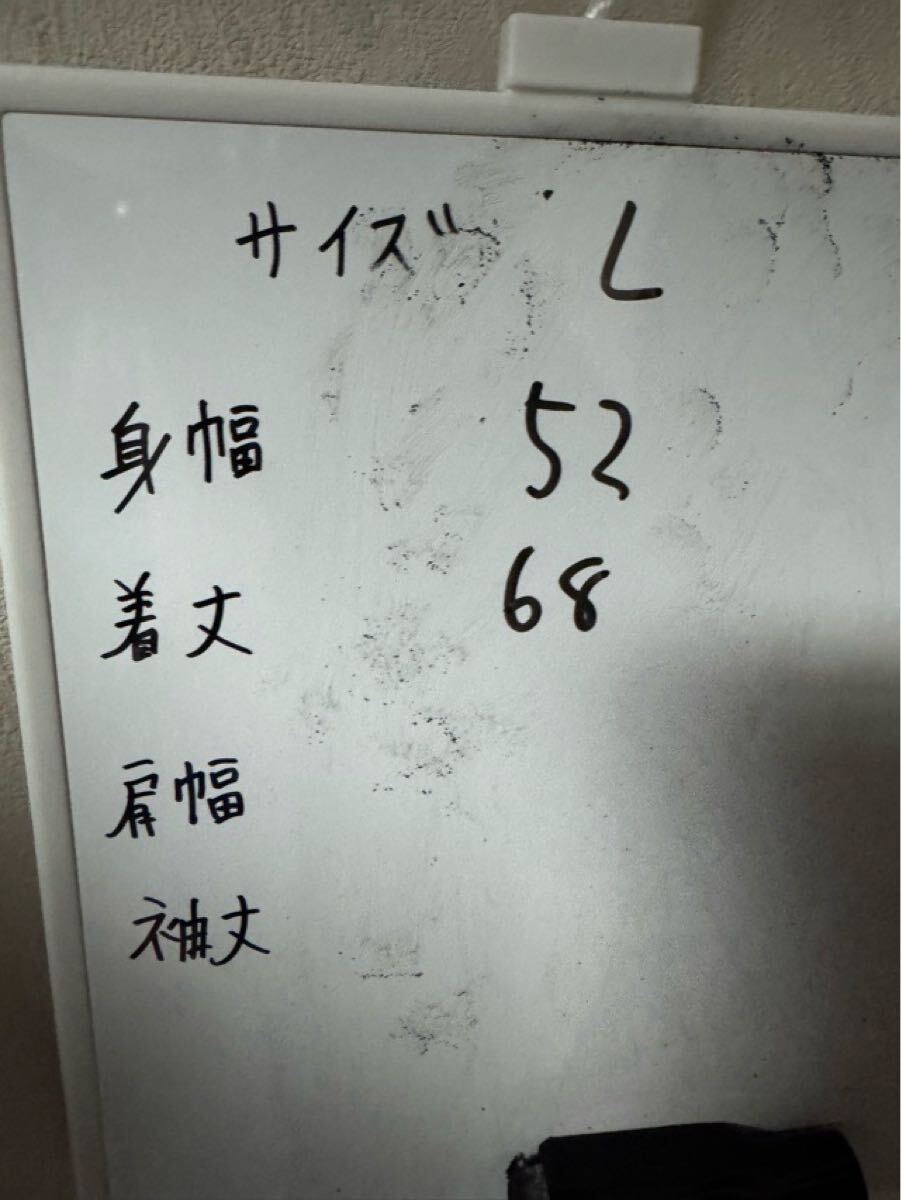 サイズ L
身幅 52
着丈 68
肩幅
袖丈